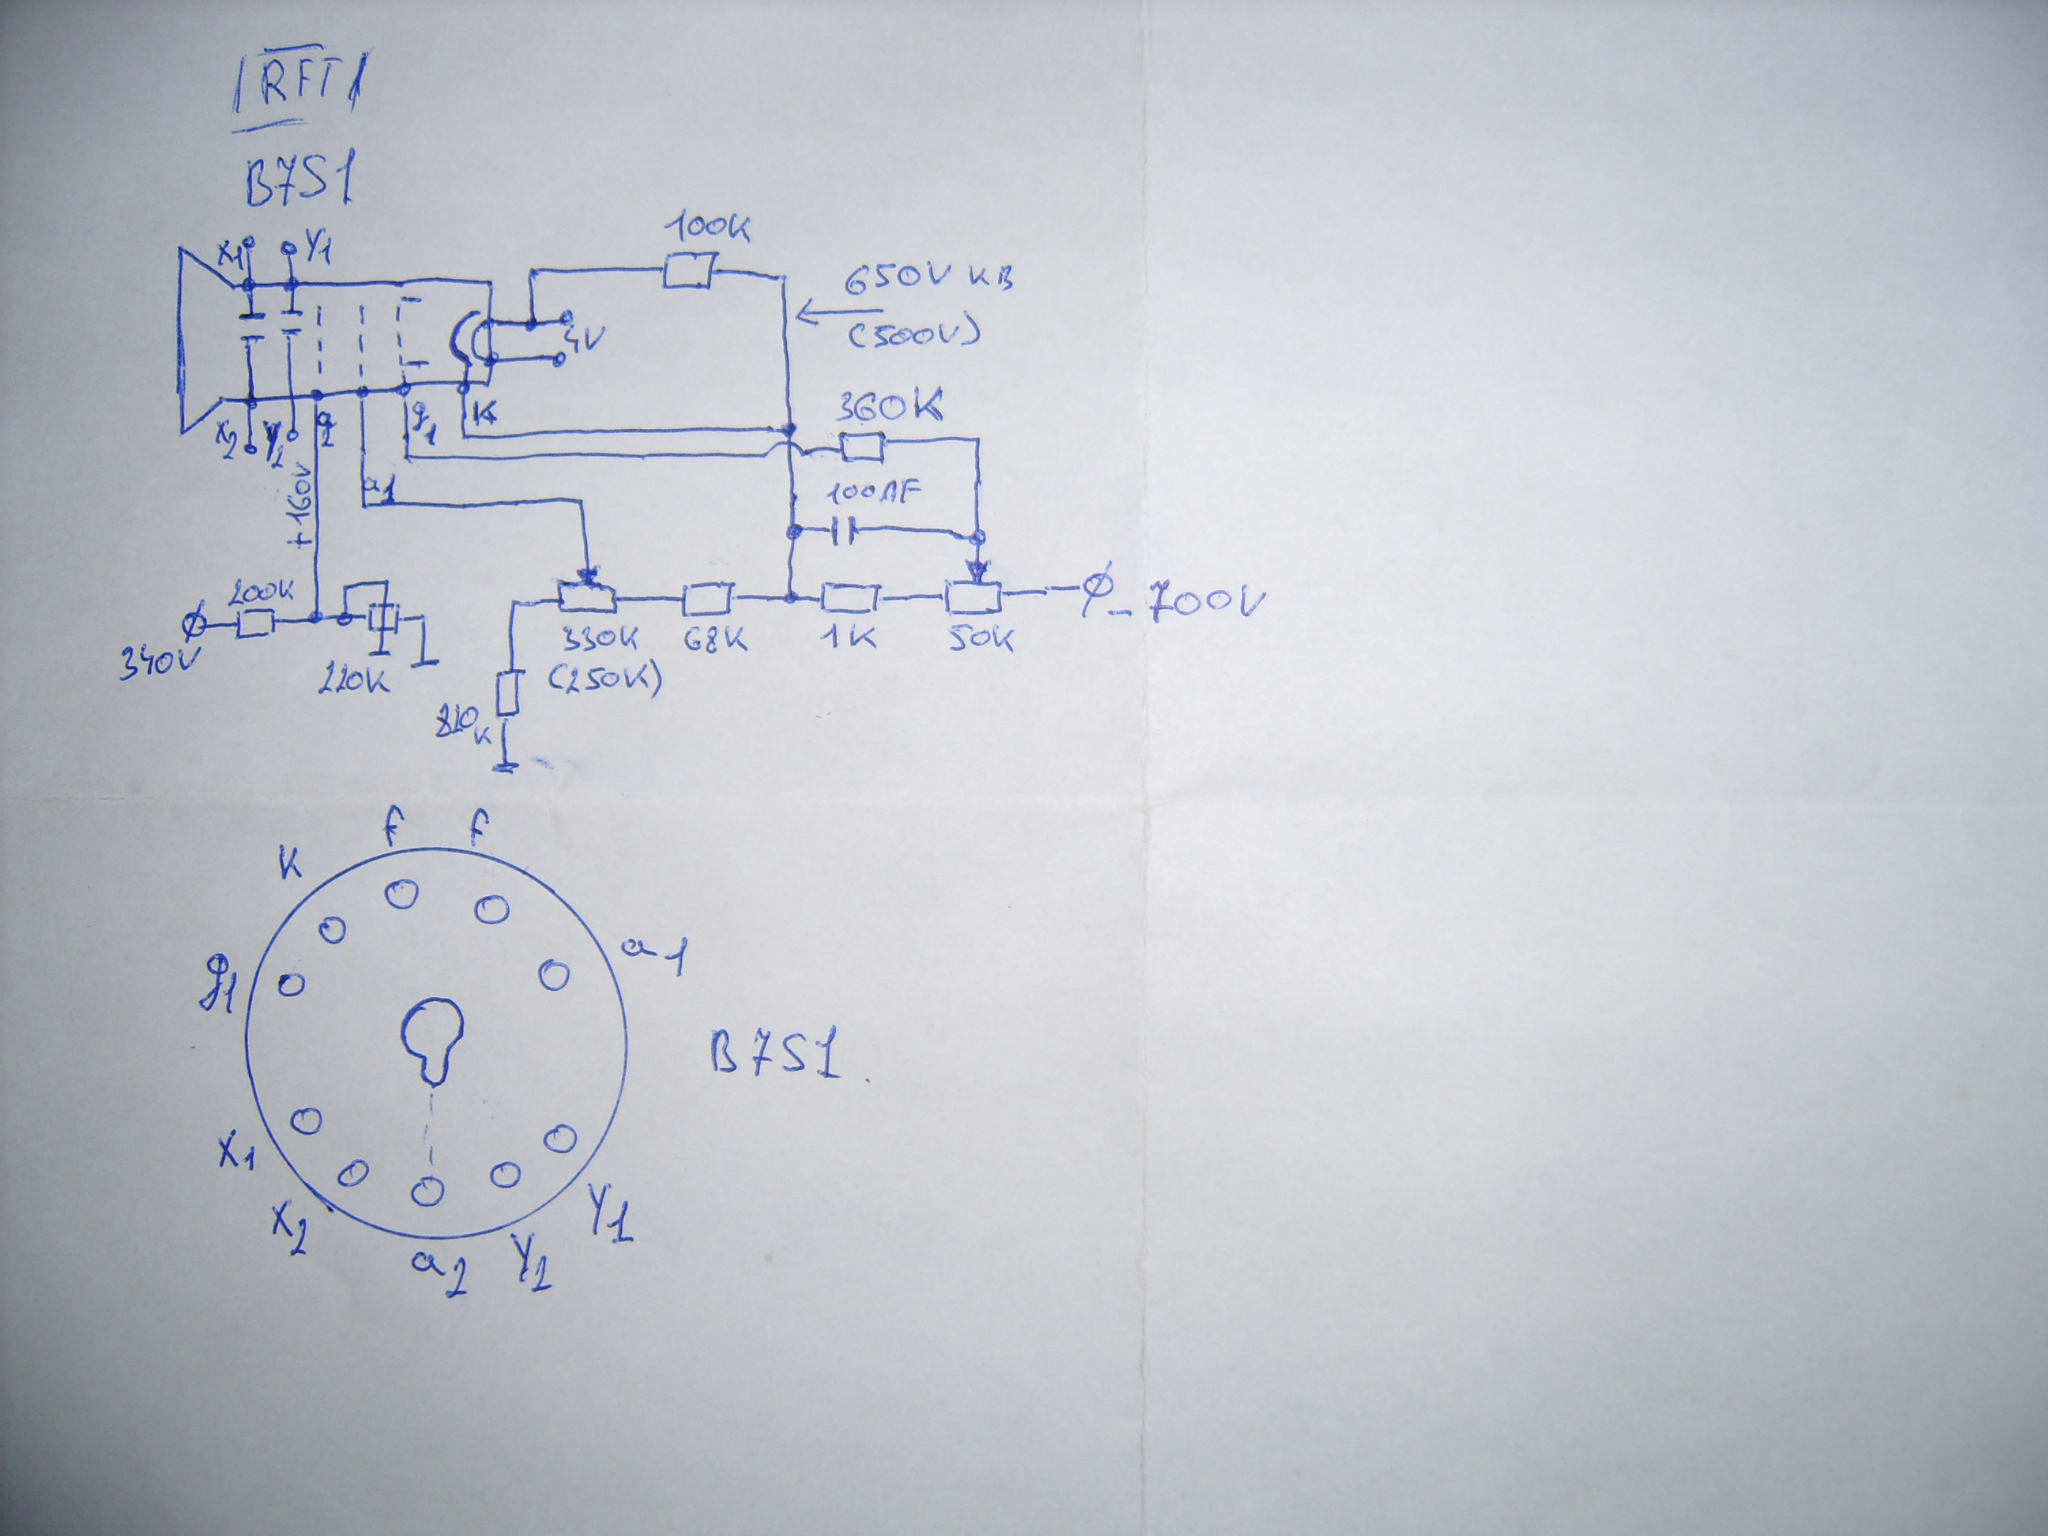 RFT
B7S1
100K
X1 Y1
650V KB
(500V)
4V
360K
X2 Y2 a2 g1 K
+160V
a1
100nF
200K
340V
220K
330K
(250K)
68K
1K
50K
-700V
820K
F F
K
a1
g1
B7S1.
X1
X2
a2
Y2
Y1